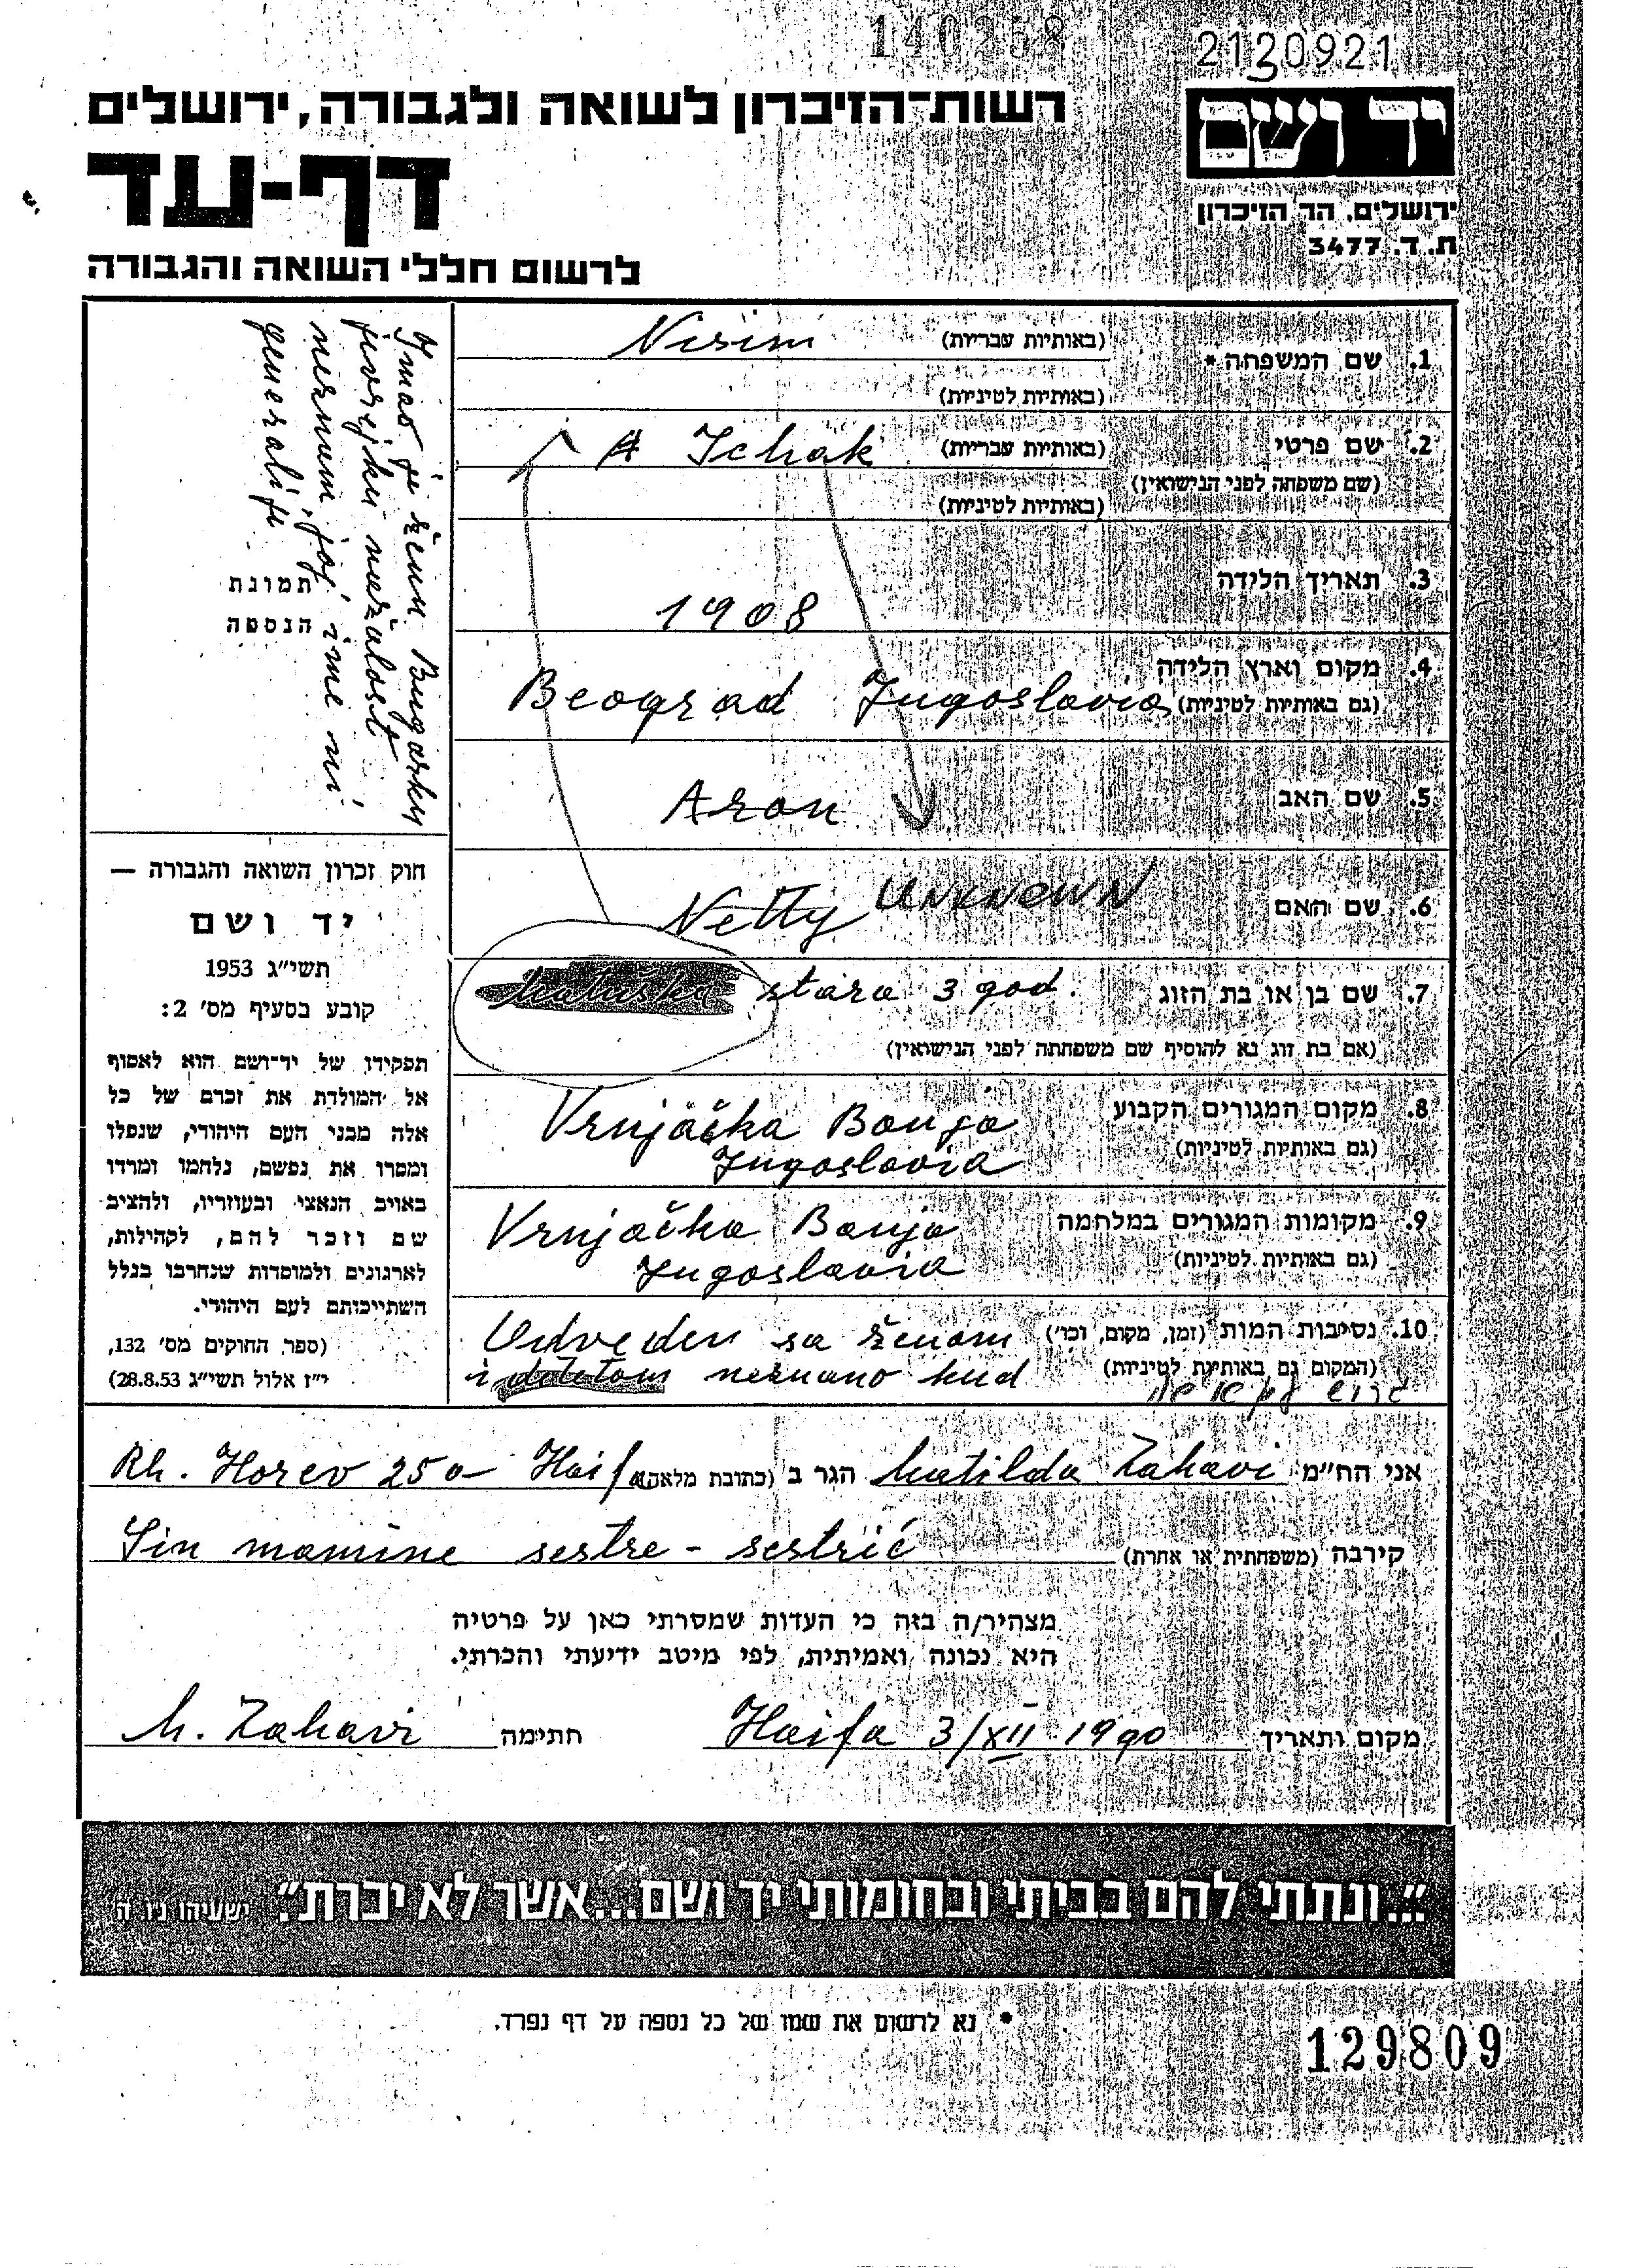 140258
2120921
רשות־הזיכרון לשואה ולגבורה, ירושלים
יד ושם
דף-עד
ירושלים, הר הזיכרון
ת. ד. 3477
לרשום חללי השואה והגבורה
1. שם המשפחה * (באותיות עבריות) Nisim
(באותיות לטיניות)
2. שם פרטי (באותיות עבריות) A Ichak
(שם משפחה לפני הנישואין)
(באותיות לטיניות)
3. תאריך הלידה 1908
4. מקום וארץ הלידה
(גם באותיות לטיניות) Beograd Jugoslavia
5. שם האב Aron
6. שם האם Netty UNKNOWN
7. שם בן או בת הזוג stara 3 god.
(אם בת זוג נא להוסיף שם משפחתה לפני הנישואין)
8. מקום המגורים הקבוע Vrnjačka Banja
(גם באותיות לטיניות) Jugoslavia
9. מקומות המגורים במלחמה Vrnjačka Banja
(גם באותיות לטיניות) Jugoslavia
10. נסיבות המות (זמן, מקום, וכו') Odveden sa ženom
(המקום גם באותיות לטיניות) i detetom neznano kud
Imao je ženu Bugarku
jevrejku nažalost
neznam joj ime ni
generalije
תמונת
הנספה
חוק זכרון השואה והגבורה —
יד ושם
תשי"ג 1953
קובע בסעיף מס' 2:
תפקידו של יד־ושם הוא לאסוף
אל המולדת את זכרם של כל
אלה מבני העם היהודי, שנפלו
ומסרו את נפשם, נלחמו ומרדו
באויב הנאצי ובעוזריו, ולהציב
שם וזכר להם, לקהילות,
לארגונים ולמוסדות שנחרבו בגלל
השתייכותם לעם היהודי.
(ספר החוקים מס' 132,
י"ז אלול תשי"ג 28.8.53)
אני הח"מ Matilda Zahavi הגר ב (כתובת מלאה) Rh. Horev 25a Haifa
קירבה (משפחתית או אחרת) Sin mamine sestre - sestrić
מצהיר/ה בזה כי העדות שמסרתי כאן על פרטיה
היא נכונה ואמיתית, לפי מיטב ידיעתי והכרתי.
מקום ותאריך Haifa 3/XII 1990 חתימה M. Zahavi
"...ונתתי להם בביתי ובחומותי יד ושם...אשר לא יכרת". ישעיהו נ"ו ה
* נא לרשום את שמו של כל נספה על דף נפרד.
129809